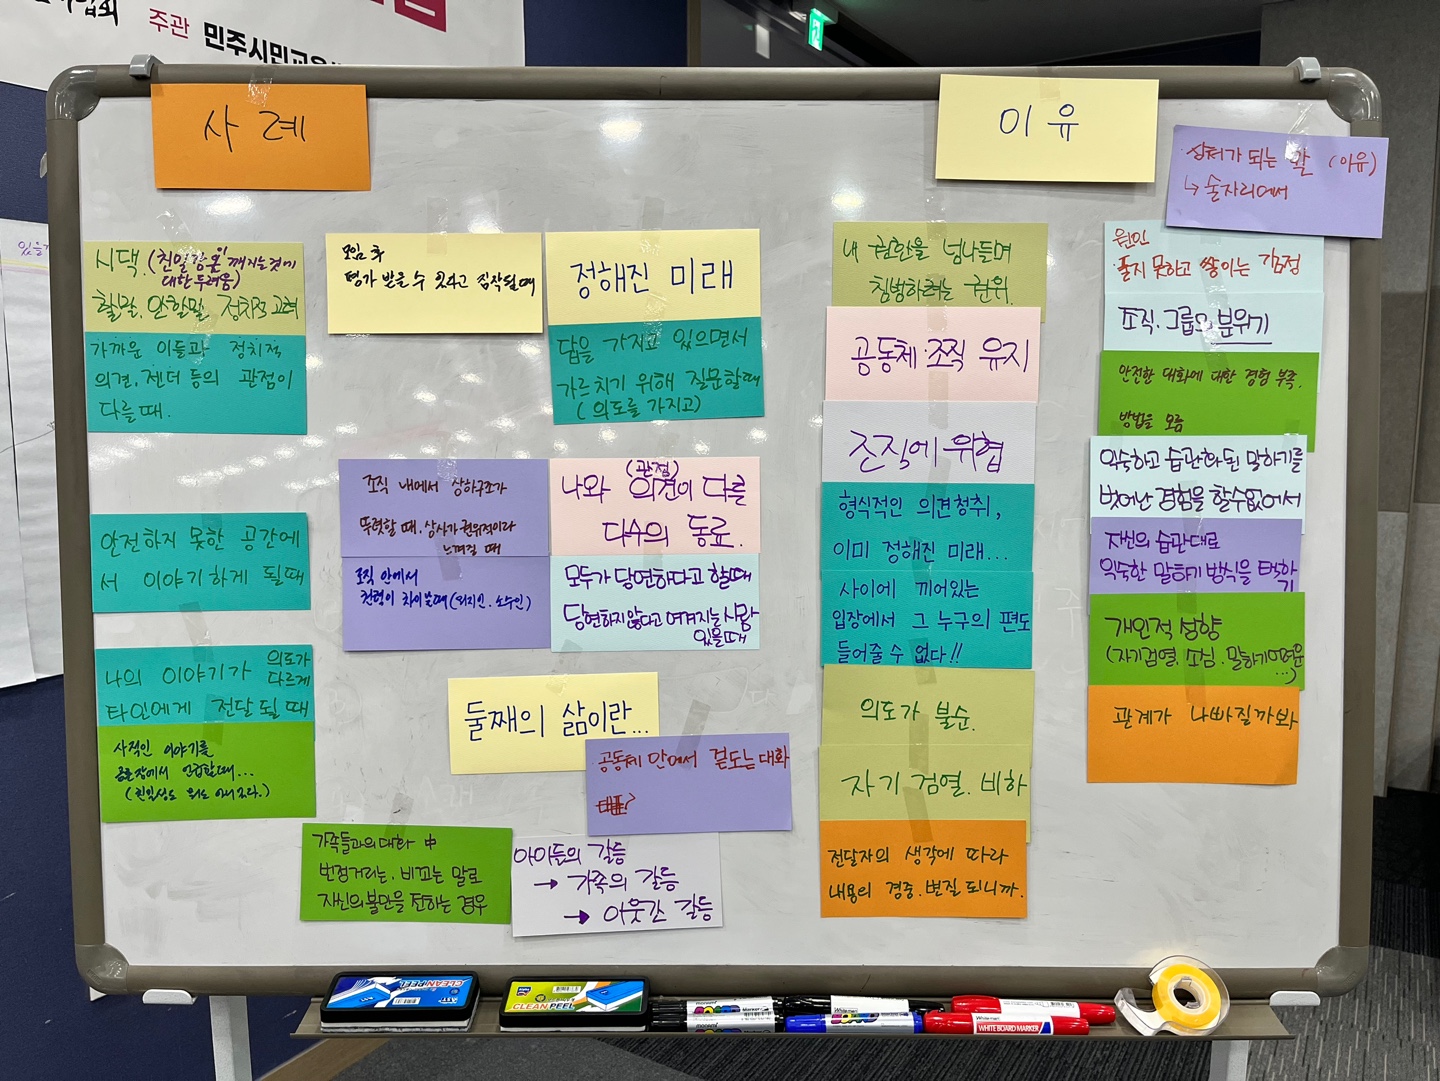 주관 민주시민교육
사례
이유
상처가 되는 말 (이유)
↳ 술자리에서
시댁.(친일감온 깨지는것에
대한 두려움)
할말. 안할말. 정치적 고려
가까운 이들과 정치적
의견, 젠더 등의 관점이
다를 때.
안전하지 못한 공간에
서 이야기하게 될 때
나의 이야기가 의도가 다르게
타인에게 전달될 때
사적인 이야기를
공론장에서 언급할때...
모임 후
평가 받을 수 있다고 짐작될 때
정해진 미래
답을 가지고 있으면서
가르치기 위해 질문할때
(의도를 가지고)
조직 내에서 상하구조가
뚜렷할 때, 상사가 권위적이라
느껴질 때
조직 안에서
나와 (관점) 의견이 다를
다수의 동료.
모두가 당연하다고 할때
당연하지않다고 여겨지는 사람
있을때
둘째의 삶이란...
공동체 안에서 겉도는 대화
가족들과의 대화 中
빈정거리는, 비꼬는 말로
자신의 불만을 전하는 경우
아이들의 갈등
→ 가족의 갈등
→ 이웃간 갈등
내 권한을 넘나들며
침범하려는 권위.
공동체·조직 유지
조직에 위협
형식적인 의견청취,
이미 정해진 미래...
사이에 끼어있는
입장에서 그 누구의 편도
들어줄 수 없다!!
의도가 불순.
자기 검열. 비하
전달자의 생각에 따라
내용의 경중. 변질 되니까.
원인
풀지 못하고 쌓이는 감정
조직·그룹의 분위기
안전한 대화에 대한 경험 부족.
방법을 모름
익숙하고 습관화된 말하기를
벗어난 경험을 할수없어서
자신의 습관대로
익숙한 말하기 방식을 택하
기
개인적 성향
(자기검열. 소심. 말하기어려움
...)
관계가 나빠질까봐
CLEAN PEEL
CLEAN PEEL
WHITE BOARD MARKER